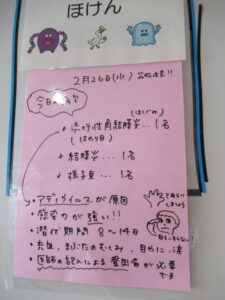 ほけん
2月26日(水)
今日の病欠
・流行性角結膜炎…1名
(はやり目)
・結膜炎…1名
・様子見…1名
・アデノウイルスが原因
・感染力が強い!!
・潜伏期間 8〜14日
・充血、まぶたのむくみ、目やに、涙
・医師の記入による登園届が必要です